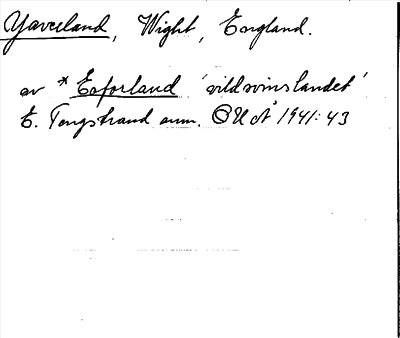 Yaverland, Wight, England.
av *Eoforland 'vildsvinslandet'
E. Tengstrand anm. OUÅ 1941:43